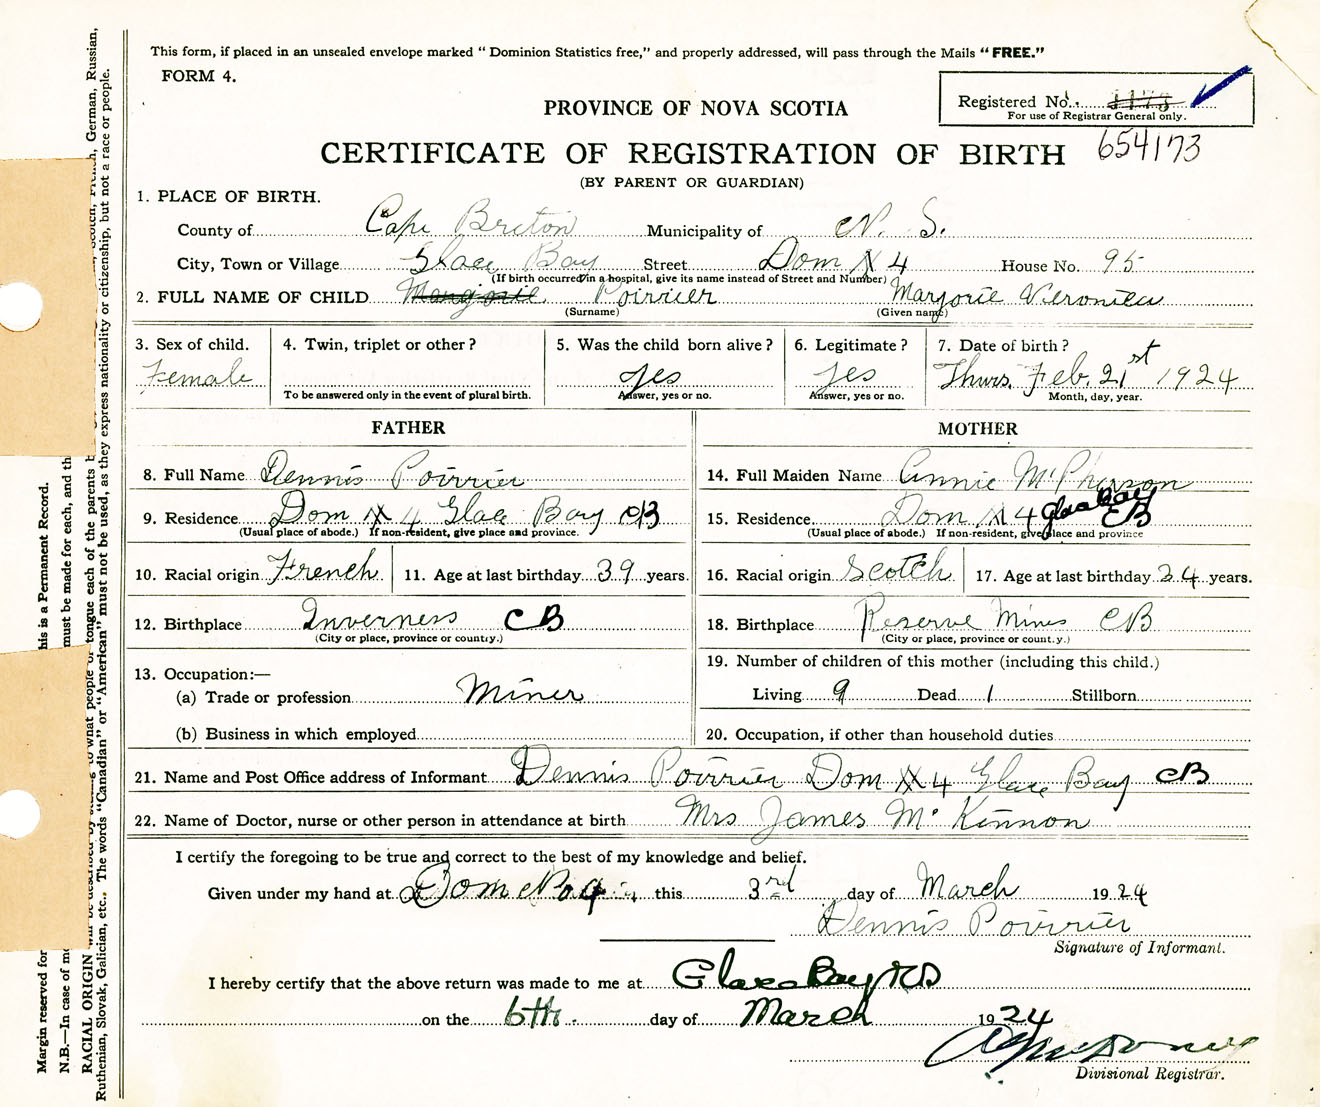 This form, if placed in an unsealed envelope marked "Dominion Statistics free," and properly addressed, will pass through the Mails "FREE."
FORM 4.
Registered No.
For use of Registrar General only.
PROVINCE OF NOVA SCOTIA
654173
CERTIFICATE OF REGISTRATION OF BIRTH
(BY PARENT OR GUARDIAN)
1. PLACE OF BIRTH.
County of Cape Breton Municipality of N. S.
City, Town or Village Glace Bay Street Dom № 4 House No. 95
(If birth occurred in a hospital, give its name instead of Street and Number)
2. FULL NAME OF CHILD Marjorie Poirrier Marjorie Veronica
(Surname) (Given name)
3. Sex of child. 4. Twin, triplet or other? 5. Was the child born alive? 6. Legitimate? 7. Date of birth?
Female yes yes Thurs. Feb. 21st 1924
To be answered only in the event of plural birth. Answer, yes or no. Answer, yes or no. Month, day, year.
FATHER MOTHER
8. Full Name Dennis Poirrier 14. Full Maiden Name Annie McPherson
9. Residence Dom № 4 Glace Bay CB 15. Residence Dom № 4 Glace Bay CB
(Usual place of abode.) If non-resident, give place and province. (Usual place of abode.) If non-resident, give place and province
10. Racial origin French 11. Age at last birthday 39 years. 16. Racial origin Scotch 17. Age at last birthday 34 years.
12. Birthplace Inverness CB 18. Birthplace Reserve Mines CB
(City or place, province or country.) (City or place, province or country.)
13. Occupation:— 19. Number of children of this mother (including this child.)
(a) Trade or profession Miner Living 9 Dead 1 Stillborn
(b) Business in which employed 20. Occupation, if other than household duties
21. Name and Post Office address of Informant Dennis Poirrier Dom № 4 Glace Bay CB
22. Name of Doctor, nurse or other person in attendance at birth Mrs James McKinnon
I certify the foregoing to be true and correct to the best of my knowledge and belief.
Given under my hand at Dom No 4 this 3rd day of March 1924
Dennis Poirrier
Signature of Informant.
I hereby certify that the above return was made to me at Glace Bay NS
on the 6th. day of March 1924
Divisional Registrar.
Margin reserved for
his is a Permanent Record.
N.B.—In case of mo
must be made for each, and th
RACIAL ORIGIN will be described by
to what people or tongue each of the parents b
Scotch, French, German, Russian,
Ruthenian, Slovak, Galician, etc.. The words "Canadian" or "American" must not be used, as they express nationality or citizenship, but not a race or people.